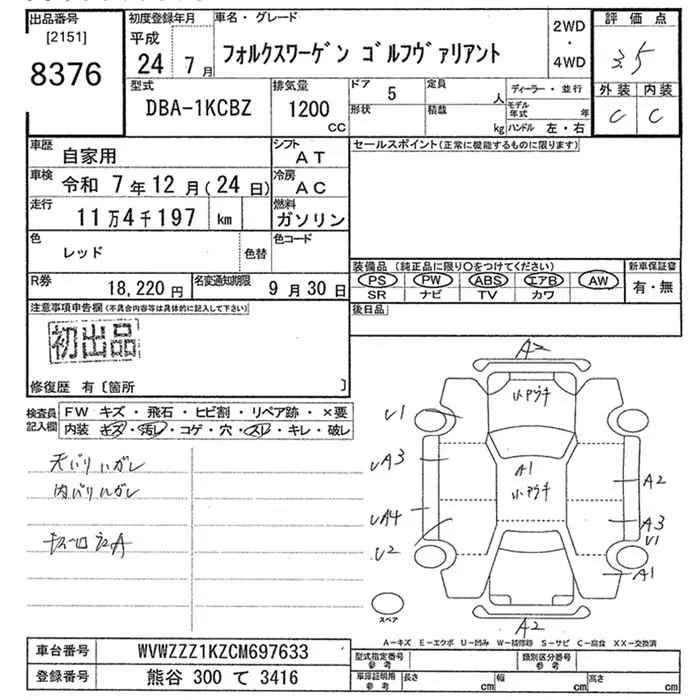 出品番号 初度登録年月 車名・グレード 2WD・4WD 評価点
[2151] 平成
8376 24年 7月 フォルクスワーゲン ゴルフヴァリアント 3.5
型式 排気量 ドア 定員 ディーラー・並行 外装 内装
DBA-1KCBZ 1200 CC 5 人 モデル年式 年 C C
形状 積載 kg ハンドル 左・右
車歴 自家用 シフト AT セールスポイント(正常に機能するものに限ります)
車検 令和 7年12月(24日) 冷房 AC
走行 11万4千197 km 燃料 ガソリン
色 レッド 色替 色コード
装備品 (純正品に限り○をつけてください) 新車保証書
R券 18,220円 名変通知期限 9月30日 PS PW ABS エアB AW 有・無
SR ナビ TV カワ
注意事項申告欄(不具合内容等は具体的に記入して下さい) 後日品
初出品
修復歴 有〔箇所 〕
検査員記入欄 FW キズ・飛石・ヒビ割・リペア跡・×要
内装 キズ・汚レ・コゲ・穴・スレ・キレ・破レ
天バリハガレ
内バリハガレ
A2
小アウキ
U1
UA3
A1
小アウキ
A2
UA4
A3
U1
U2
A1
A2
スペア
A－キズ E－エクボ U－凹み W－補修跡 S－サビ C－腐食 XX－交換済
車台番号 WVWZZZ1KZCM697633 型式指定番号 参考 類別区分番号 参考
登録番号 熊谷 300 て 3416 車庫証明用 参考 長さ cm 幅 cm 高さ cm